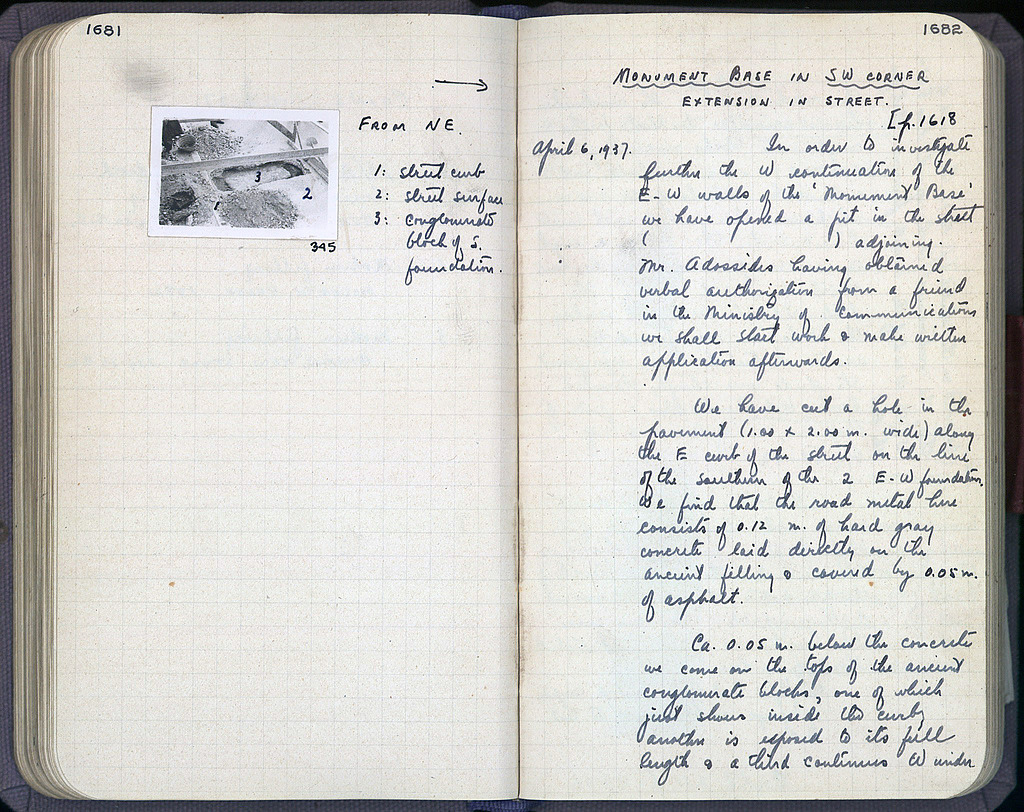 1681
→
FROM NE.
1: street curb
2: street surface
3: conglomerate
block of S.
foundation.
1
2
3
345
1682
MONUMENT BASE IN SW CORNER
EXTENSION IN STREET.
[p. 1618
April 6, 1937. In order to investigate
further the W continuation of the
E-W walls of the 'Monument Base'
we have opened a pit in the street
( ) adjoining.
Mr. Adossides having obtained
verbal authorization from a friend
in the Ministry of Communications
we shall start work & make written
application afterwards.
We have cut a hole in the
pavement (1.00 x 2.00 m. wide) along
the E curb of the street on the line
of the southern of the 2 E-W foundations.
We find that the road metal here
consists of 0.12 m. of hard gray
concrete laid directly on the
ancient filling & covered by 0.05 m.
of asphalt.
Ca. 0.05 m. below the concrete
we come on the tops of the ancient
conglomerate blocks, one of which
just shows inside the curb,
another is exposed to its full
length & a third continues W under